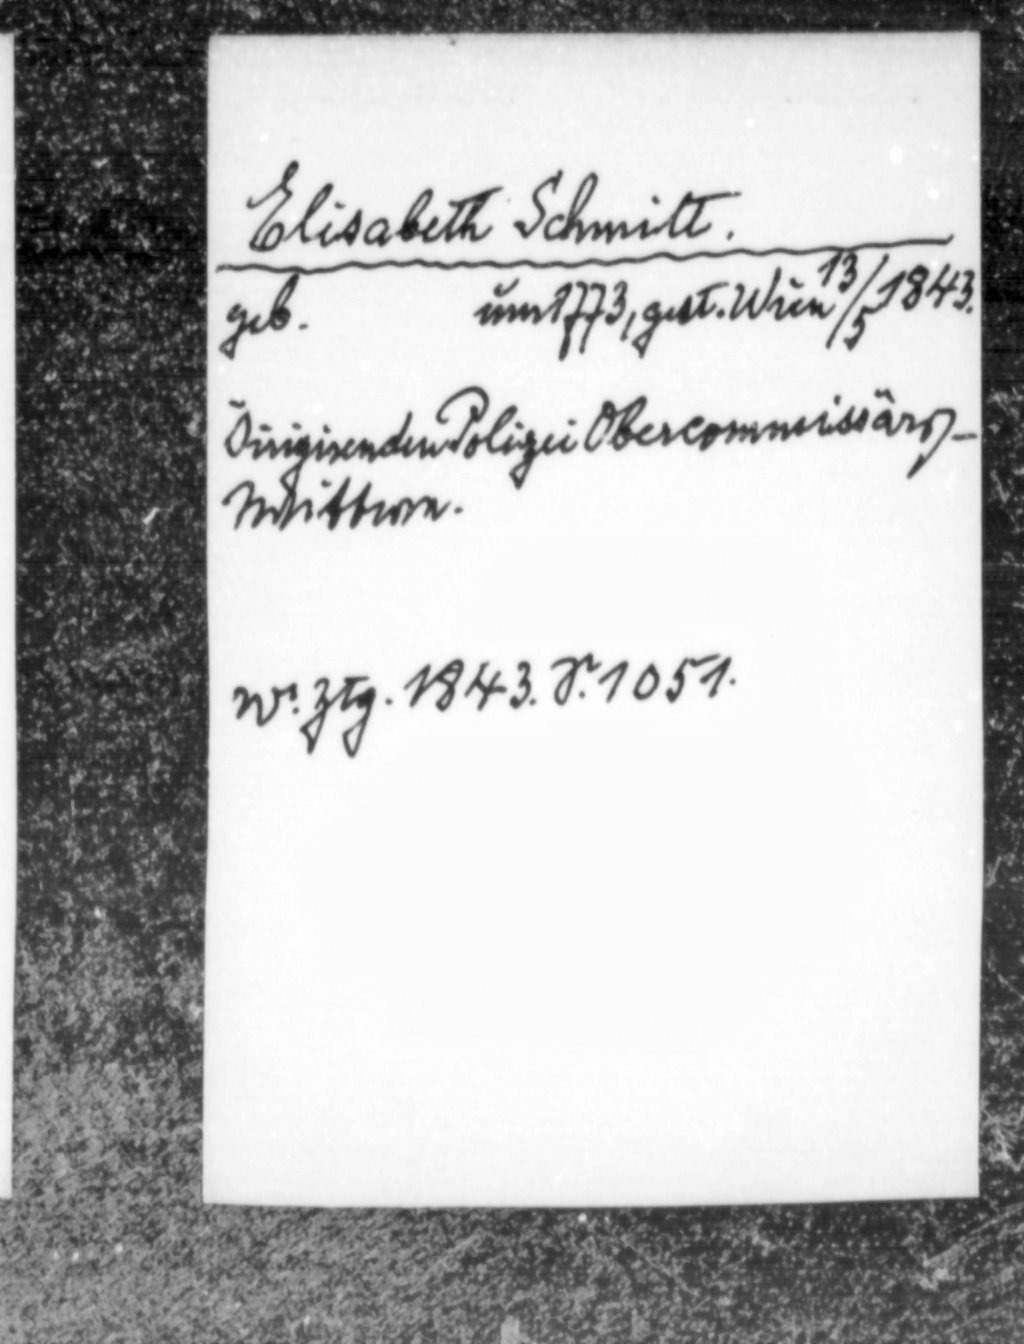 Elisabeth Schmitt.
geb. um 1773, gest. Wien 13/5 1843.
Dirigirenden Polizei Obercommissärs-
Wittwe.
Wr. Ztg. 1843. S. 1051.